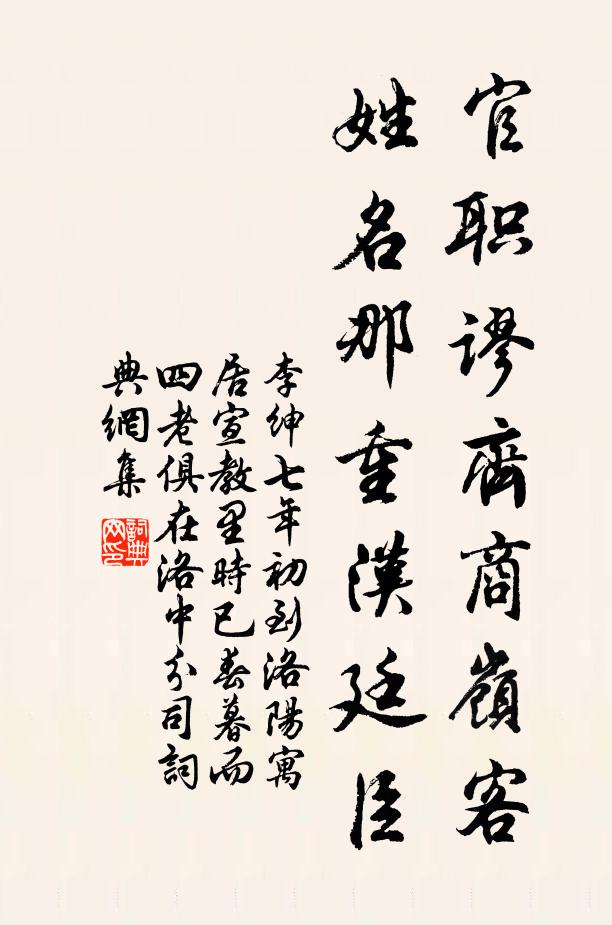 官职谬齊商嶺客
姓名那重漢廷臣
李紳七年初到洛陽寓
居宣教里時已春暮而
四老俱在洛中分司詞
典網集
詞典
网印